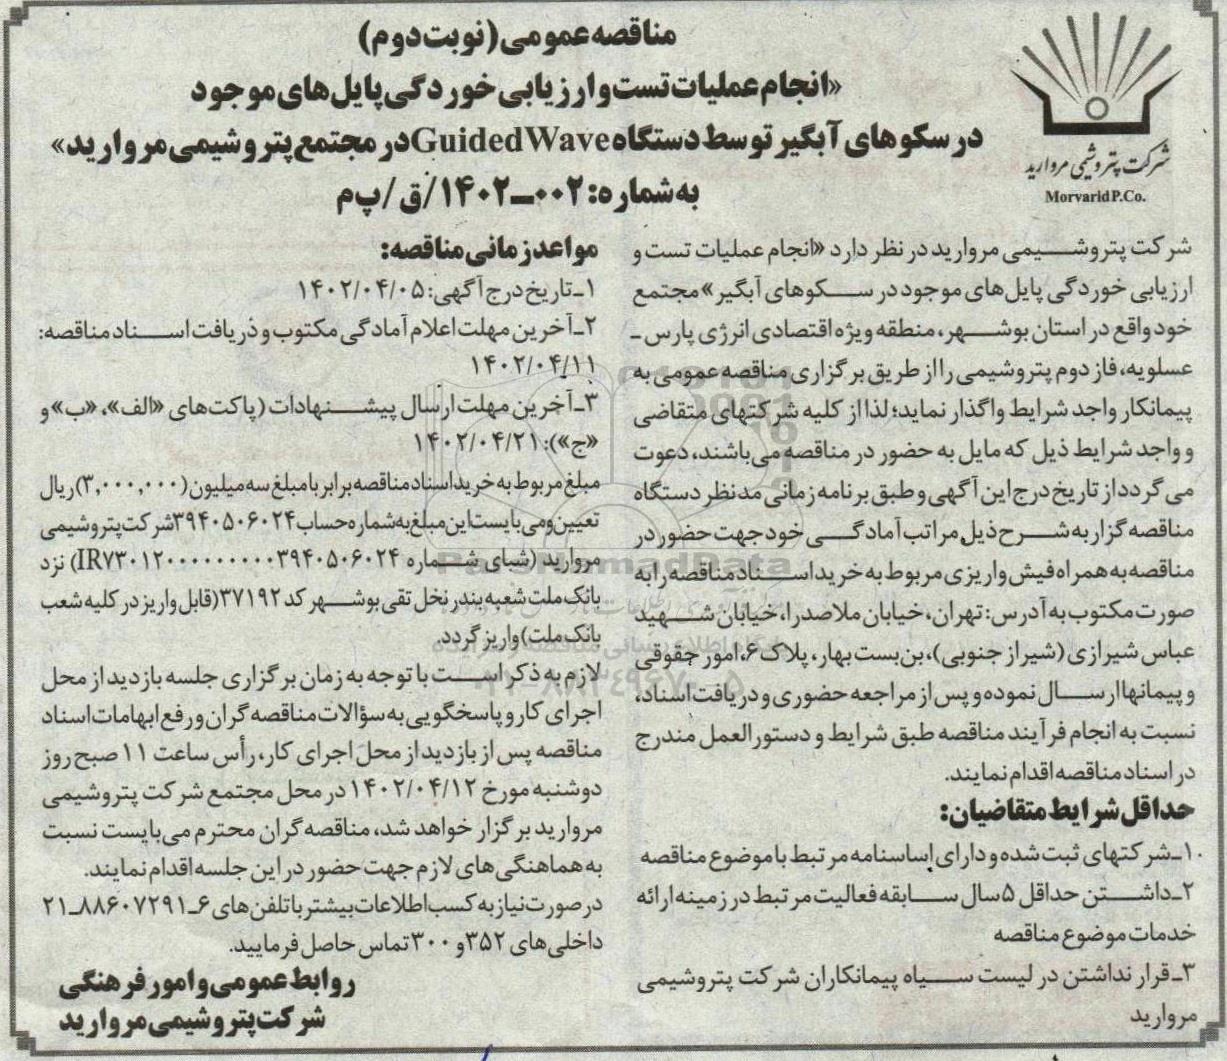 مناقصه عمومی (نوبت دوم)
«انجام عملیات تست و ارزیابی خوردگی پایل‌های موجود
در سکوهای آبگیر توسط دستگاه Guided Wave در مجتمع پتروشیمی مروارید»
به شماره: ۰۰۲-۱۴۰۲/ق/پ م
شرکت پتروشیمی مروارید
Morvarid P.Co.
شرکت پتروشیمی مروارید در نظر دارد «انجام عملیات تست و
ارزیابی خوردگی پایل‌های موجود در سکوهای آبگیر» مجتمع
خود واقع در استان بوشهر، منطقه ویژه اقتصادی انرژی پارس -
عسلویه، فاز دوم پتروشیمی را از طریق برگزاری مناقصه عمومی به
پیمانکار واجد شرایط واگذار نماید؛ لذا از کلیه شرکتهای متقاضی
و واجد شرایط ذیل که مایل به حضور در مناقصه می‌باشند، دعوت
می‌گردد از تاریخ درج این آگهی و طبق برنامه زمانی مدنظر دستگاه
مناقصه گزار به شرح ذیل مراتب آمادگی خود جهت حضور در
مناقصه به همراه فیش واریزی مربوط به خرید اسناد مناقصه را به
صورت مکتوب به آدرس: تهران، خیابان ملاصدرا، خیابان شهید
عباس شیرازی (شیراز جنوبی)، بن‌بست بهار، پلاک ۶، امور حقوقی
و پیمانها ارسال نموده و پس از مراجعه حضوری و دریافت اسناد،
نسبت به انجام فرآیند مناقصه طبق شرایط و دستورالعمل مندرج
در اسناد مناقصه اقدام نمایند.
حداقل شرایط متقاضیان:
۱-شرکتهای ثبت شده و دارای اساسنامه مرتبط با موضوع مناقصه
۲-داشتن حداقل ۵ سال سابقه فعالیت مرتبط در زمینه ارائه
خدمات موضوع مناقصه
۳-قرار نداشتن در لیست سیاه پیمانکاران شرکت پتروشیمی
مروارید
مواعد زمانی مناقصه:
۱-تاریخ درج آگهی: ۱۴۰۲/۰۴/۰۵
۲-آخرین مهلت اعلام آمادگی مکتوب و دریافت اسناد مناقصه:
۱۴۰۲/۰۴/۱۱
۳-آخرین مهلت ارسال پیشنهادات (پاکت‌های «الف»، «ب» و
«ج»): ۱۴۰۲/۰۴/۲۱
مبلغ مربوط به خرید اسناد مناقصه برابر با مبلغ سه میلیون (۳,۰۰۰,۰۰۰) ریال
تعیین و می‌بایست این مبلغ به شماره حساب ۳۹۴۰۵۰۶۰۲۴ شرکت پتروشیمی
مروارید (شبای شماره IR۷۳۰۱۲۰۰۰۰۰۰۰۰۰۰۳۹۴۰۵۰۶۰۲۴) نزد
بانک ملت شعبه بندر نخل تقی بوشهر کد ۳۷۱۹۲ (قابل واریز در کلیه شعب
بانک ملت) واریز گردد.
لازم به ذکر است با توجه به زمان برگزاری جلسه بازدید از محل
اجرای کار و پاسخگویی به سؤالات مناقصه گران و رفع ابهامات اسناد
مناقصه پس از بازدید از محل اجرای کار، رأس ساعت ۱۱ صبح روز
دوشنبه مورخ ۱۴۰۲/۰۴/۱۲ در محل مجتمع شرکت پتروشیمی
مروارید برگزار خواهد شد، مناقصه گران محترم می‌بایست نسبت
به هماهنگی های لازم جهت حضور در این جلسه اقدام نمایند.
در صورت نیاز به کسب اطلاعات بیشتر با تلفن های ۶-۸۸۶۰۷۲۹۱-۲۱
داخلی های ۳۵۲ و ۳۰۰ تماس حاصل فرمایید.
روابط عمومی و امور فرهنگی
شرکت پتروشیمی مروارید